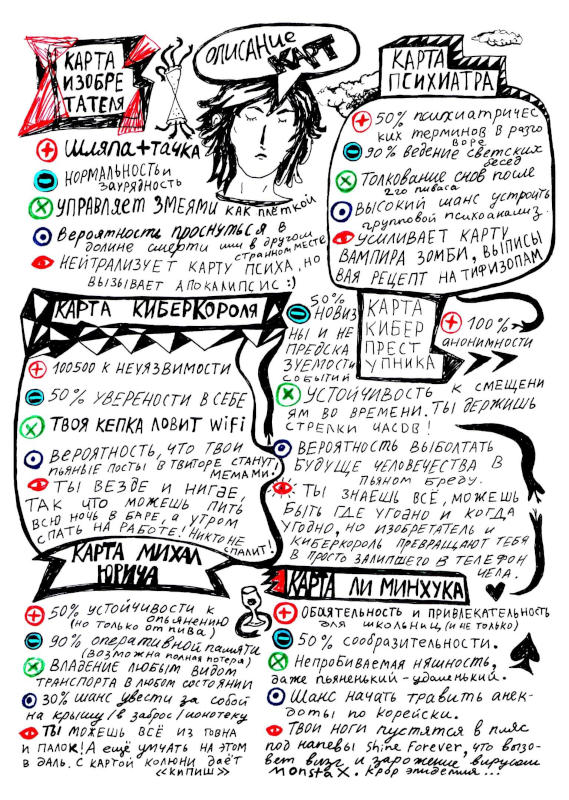 ОПИСАНИЕ
КАРТ
КАРТА
ИЗОБРЕ
ТАТЕЛЯ
ШЛЯПА+ТАЧКА
НОРМАЛЬНОСТЬ И
ЗАУРЯДНОСТЬ
УПРАВЛЯЕТ ЗМЕЯМИ КАК ПЛЁТКОЙ
ВЕРОЯТНОСТЬ ПРОСНУТЬСЯ В
ДОЛИНЕ СМЕРТИ ИЛИ В ДРУГОМ
СТРАННОМ МЕСТЕ
НЕЙТРАЛИЗУЕТ КАРТУ ПСИХА, НО
ВЫЗЫВАЕТ АПОКАЛИПСИС :)
КАРТА
ПСИХИАТРА
50% ПСИХИАТРИЧЕС
КИХ ТЕРМИНОВ В РАЗГО
ВОРЕ
90% ВЕДЕНИЕ СВЕТСКИХ
БЕСЕД
ТОЛКОВАНИЕ СНОВ ПОСЛЕ
2ГО ПИВАСА
ВЫСОКИЙ ШАНС УСТРОИТЬ
ГРУППОВОЙ ПСИХОАНАЛИЗ.
УСИЛИВАЕТ КАРТУ
ВАМПИРА ЗОМБИ, ВЫПИСЫ
ВАЯ РЕЦЕПТ НА ТИФИЗОПАМ
КАРТА КИБЕРКОРОЛЯ
100500 К НЕУЯЗВИМОСТИ
50% УВЕРЕНОСТИ В СЕБЕ
ТВОЯ КЕПКА ЛОВИТ WiFi
ВЕРОЯТНОСТЬ, ЧТО ТВОИ
ПЬЯНЫЕ ПОСТЫ В ТВИТОРЕ СТАНУТ
МЕМАМИ.
ТЫ ВЕЗДЕ И НИГДЕ,
ТАК ЧТО МОЖЕШЬ ПИТЬ
ВСЮ НОЧЬ В БАРЕ, А УТРОМ
СПАТЬ НА РАБОТЕ! НИКТО НЕ
СПАЛИТ!
КАРТА
КИБЕР
ПРЕСТ
УПНИКА
100%
АНОНИМНОСТИ
50%
НОВИЗ
НЫ И НЕ
ПРЕДСКА
ЗУЕМОСТИ
СОБЫТИЙ
УСТОЙЧИВОСТЬ К СМЕЩЕНИ
ЯМ ВО ВРЕМЕНИ. ТЫ ДЕРЖИШЬ
СТРЕЛКИ ЧАСОВ!
ВЕРОЯТНОСТЬ ВЫБОЛТАТЬ
БУДУЩЕ ЧЕЛОВЕЧЕСТВА В
ПЬЯНОМ БРЕДУ.
ТЫ ЗНАЕШЬ ВСЁ, МОЖЕШЬ
БЫТЬ ГДЕ УГОДНО И КОГДА
УГОДНО, НО ИЗОБРЕТАТЕЛЬ И
КИБЕРКОРОЛЬ ПРЕВРАЩАЮТ ТЕБЯ
В ПРОСТО ЗАЛИПШЕГО В ТЕЛЕФОН
ЧЕЛА.
КАРТА МИХАЛ
ЮРИЧА
50% УСТОЙЧИВОСТИ К
ОПЬЯНЕНИЮ
(НО ТОЛЬКО ОТ ПИВА)
90% ОПЕРАТИВНОЙ ПАМЯТИ
(ВОЗМОЖНА ПОЛНАЯ ПОТЕРЯ)
ВЛАДЕНИЕ ЛЮБЫМ ВИДОМ
ТРАНСПОРТА В ЛЮБОМ СОСТОЯНИИ
30% ШАНС УВЕСТИ ЗА СОБОЙ
НА КРЫШУ/В ЗАБРОС/ИПОТЕКУ
ТЫ МОЖЕШЬ ВСЁ ИЗ ГОВНА
И ПАЛОК! А ЕЩЁ УМЧАТЬ НА ЭТОМ
В ДАЛЬ. С КАРТОЙ КОЛЮНИ ДАЁТ
«КИПИШ»
КАРТА ЛИ МИНХУКА
ОБОЯТЕЛЬНОСТЬ И ПРИВЛЕКАТЕЛЬНОСТЬ
ДЛЯ ШКОЛЬНИЦ (И НЕ ТОЛЬКО)
50% СООБРАЗИТЕЛЬНОСТИ.
НЕПРОБИВАЕМАЯ НЯШНОСТЬ,
ДАЖЕ ПЬЯНЕНЬКИЙ - УДАЛЕНЬКИЙ.
ШАНС НАЧАТЬ ТРАВИТЬ АНЕК-
ДОТЫ ПО КОРЕЙСКИ.
ТВОИ НОГИ ПУСТЯТСЯ В ПЛЯС
ПОД НАПЕВЫ Shine Forever, ЧТО ВЫЗО-
ВЕТ ВИЗГ И ЗАРОЖЕНИЕ ВИРУСОМ
Monsta X. КРОР ЭПИДЕМИЯ...